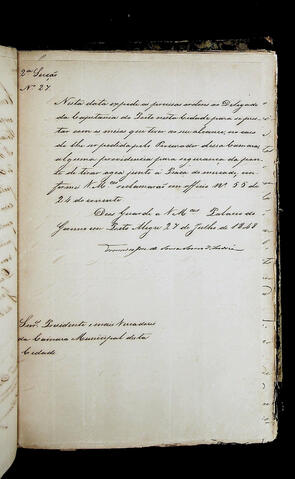 2ª Secção
Nº 27
Nesta data expede as precisas ordens ao Delegado
da Capitania do Porto nesta Cidade para se pres-
tar com os meios que tiver ao seu alcance, no caso
de lhe ser pedida pelo Procurador dessa Camara,
alguma providencia para segurança da pon-
te de tirar agoa junto á Praça do mercado, con-
forme V. Mces reclamarão em officio Nº 55 de
24 do corrente
Deos Guarde a V. Mces Palacio do
Governo em Porto Alegre 27 de Julho de 1848
Senres Presidente e mais Vereadores
da Camara Municipal desta
Cidade